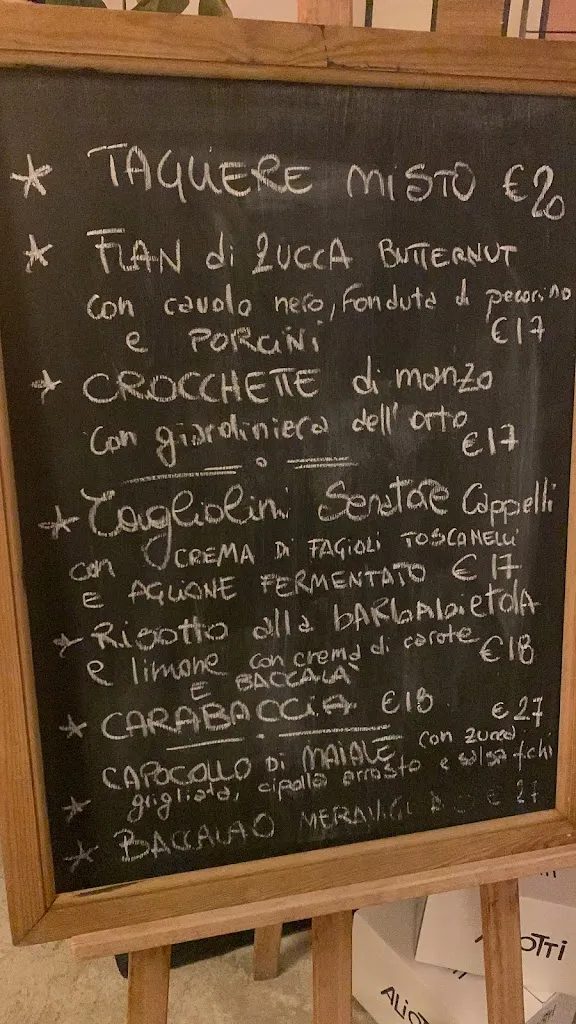 * TAGLIERE MISTO €20
* FLAN di ZUCCA BUTTERNUT
con cavolo nero, fonduta di pecorino
e PORCINI €17
* CROCCHETTE di manzo
con giardiniera dell'orto €17
* Tagliolini Senatore Cappelli
con CREMA DI FAGIOLI TOSCANELLI
E AGLIONE FERMENTATO € 17
* Risotto alla bARbAbietola
e limone con crema di carote €18
E BACCALÀ
* CARABACCIA €18
€27
CAPOCOLLO DI MAIALE con zucca
* grigliata, cipolla arrosto e salsa fichi
* BACCALAO € 27
ALIOTTI